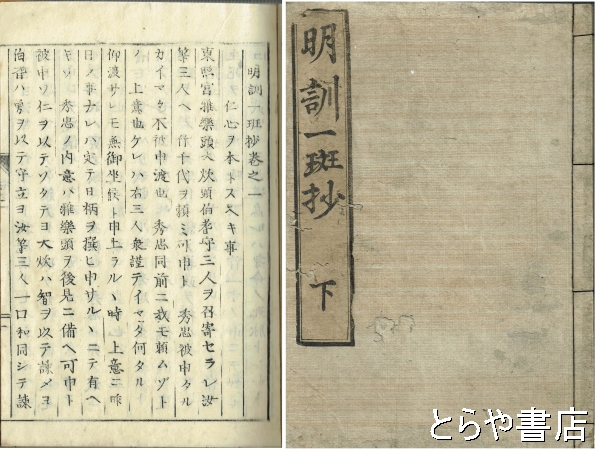 明訓一班抄
下
明訓一班抄巻之一
仁心ヲ本トスヘキ事
東照宮雅樂頭大炊頭伯耆守三人ヲ召寄セラレ汝
等三人ヘ竹千代ヲ頼ミ可申ト 秀忠被申タル
カイマタ不被申渡也 秀忠同前ニ我モ頼ムゾト
ノ 上意也ケレハ右三人衆謹テイマダ何タル
仰渡サレモ無御坐候ト申上ラルヽ時 上意ニ昨
日ノ事ナレハ定テ日柄ヲ撰ヒ申サルヽニテ有ヘ
秀忠ノ内意ハ雅樂頭ヲ後見ニ備ヘ可申ト
被申ソ仁ヲ以テソタテヨ大炊ハ智ヲ以テ諫メヨ
伯耆ハ勇ヲ以テ守立ヨ汝等三人一口和同シテ諫
とらや書店